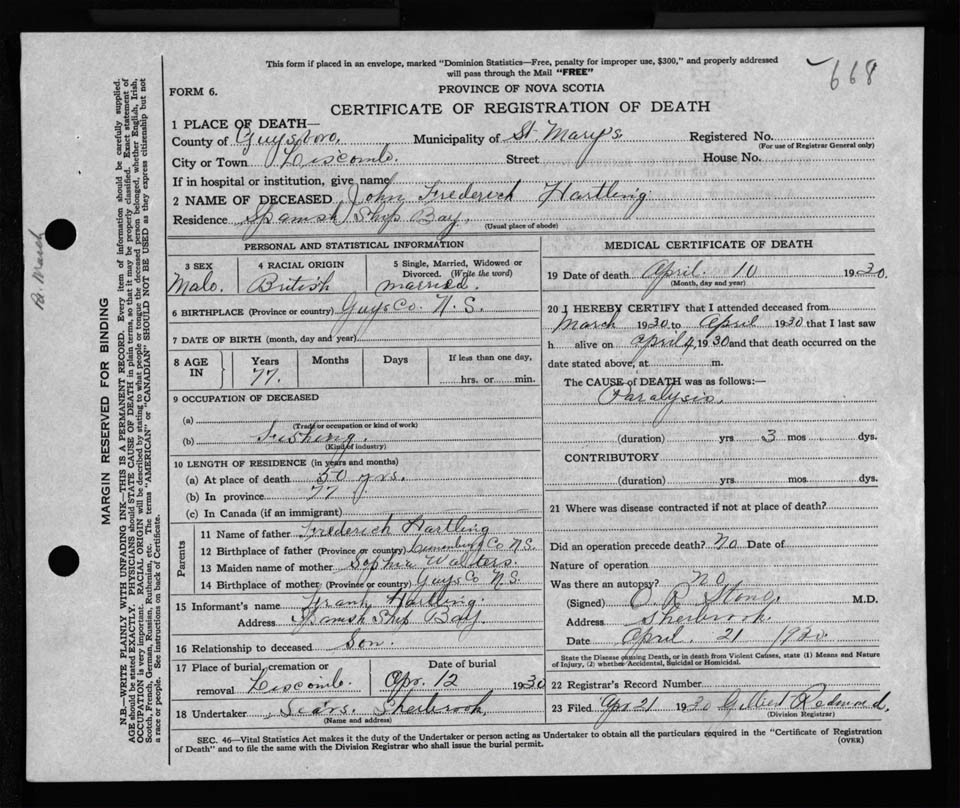 This form if placed in an envelope, marked "Dominion Statistics—Free, penalty for improper use, $300," and properly addressed
will pass through the Mail "FREE"
668
FORM 6.
PROVINCE OF NOVA SCOTIA
CERTIFICATE OF REGISTRATION OF DEATH
1 PLACE OF DEATH—
County of Guysboro. Municipality of St Marys. Registered No.
(For use of Registrar General only)
City or Town Liscomb. Street House No.
If in hospital or institution, give name
2 NAME OF DECEASED John Frederich Hartling
Residence Spanish Ship Bay.
(Usual place of abode)
PERSONAL AND STATISTICAL INFORMATION
3 SEX
Male.
4 RACIAL ORIGIN
British
5 Single, Married, Widowed or
Divorced. (Write the word)
married.
6 BIRTHPLACE (Province or country) Guys Co. N.S.
7 DATE OF BIRTH (month, day and year)
8 AGE IN
Years
77.
Months
Days
If less than one day,
hrs. or min.
9 OCCUPATION OF DECEASED
(a)
(Trade or occupation or kind of work)
(b) Fishing.
(Kind of industry)
10 LENGTH OF RESIDENCE (in years and months)
(a) At place of death 50 yrs.
(b) In province 77
(c) In Canada (if an immigrant)
Parents
11 Name of father Frederich Hartling
12 Birthplace of father (Province or country) Lunenburg Co N.S.
13 Maiden name of mother Sophia Walters.
14 Birthplace of mother (Province or country) Guys Co N.S.
15 Informant's name Frank Hartling.
Address Spanish Ship Bay.
16 Relationship to deceased Son.
17 Place of burial, cremation or
removal Liscomb.
Date of burial
Apr. 12 1930
18 Undertaker Sears. Sherbrook.
(Name and address)
MEDICAL CERTIFICATE OF DEATH
19 Date of death April. 10 1930.
(Month, day and year)
20 I HEREBY CERTIFY that I attended deceased from
March 1930 to April 1930 that I last saw
h alive on April 4, 1930 and that death occurred on the
date stated above, at m.
The CAUSE of DEATH was as follows:—
Paralysis.
(duration) yrs 3 mos dys.
CONTRIBUTORY
(duration) yrs. mos. dys.
21 Where was disease contracted if not at place of death?
Did an operation precede death? No Date of
Nature of operation
Was there an autopsy? no
(Signed) M.D.
Address Sherbrook.
Date April. 21 1930
State the Disease causing Death, or in death from Violent Causes, state (1) Means and Nature
of Injury, (2) whether Accidental, Suicidal or Homicidal.
22 Registrar's Record Number
23 Filed Apr 21 1930 Gilbert Redmond.
(Division Registrar)
SEC. 46—Vital Statistics Act makes it the duty of the Undertaker or person acting as Undertaker to obtain all the particulars required in the "Certificate of Registration
of Death" and to file the same with the Division Registrar who shall issue the burial permit.
(OVER)
MARGIN RESERVED FOR BINDING
N.B.—WRITE PLAINLY WITH UNFADING INK—THIS IS A PERMANENT RECORD. Every item of information should be carefully supplied.
AGE should be stated EXACTLY. PHYSICIANS should STATE CAUSE OF DEATH in plain terms, so that it may be properly classified. Exact statement of
OCCUPATION is very important. RACIAL ORIGIN will be described by stating to what people or tongue the deceased person belonged, whether English, Irish,
Scotch, French, German, Russian, Ruthenian, etc. The terms "AMERICAN" or "CANADIAN" SHOULD NOT BE USED as they express citizenship but not
a race or people. See instructions on back of Certificate.